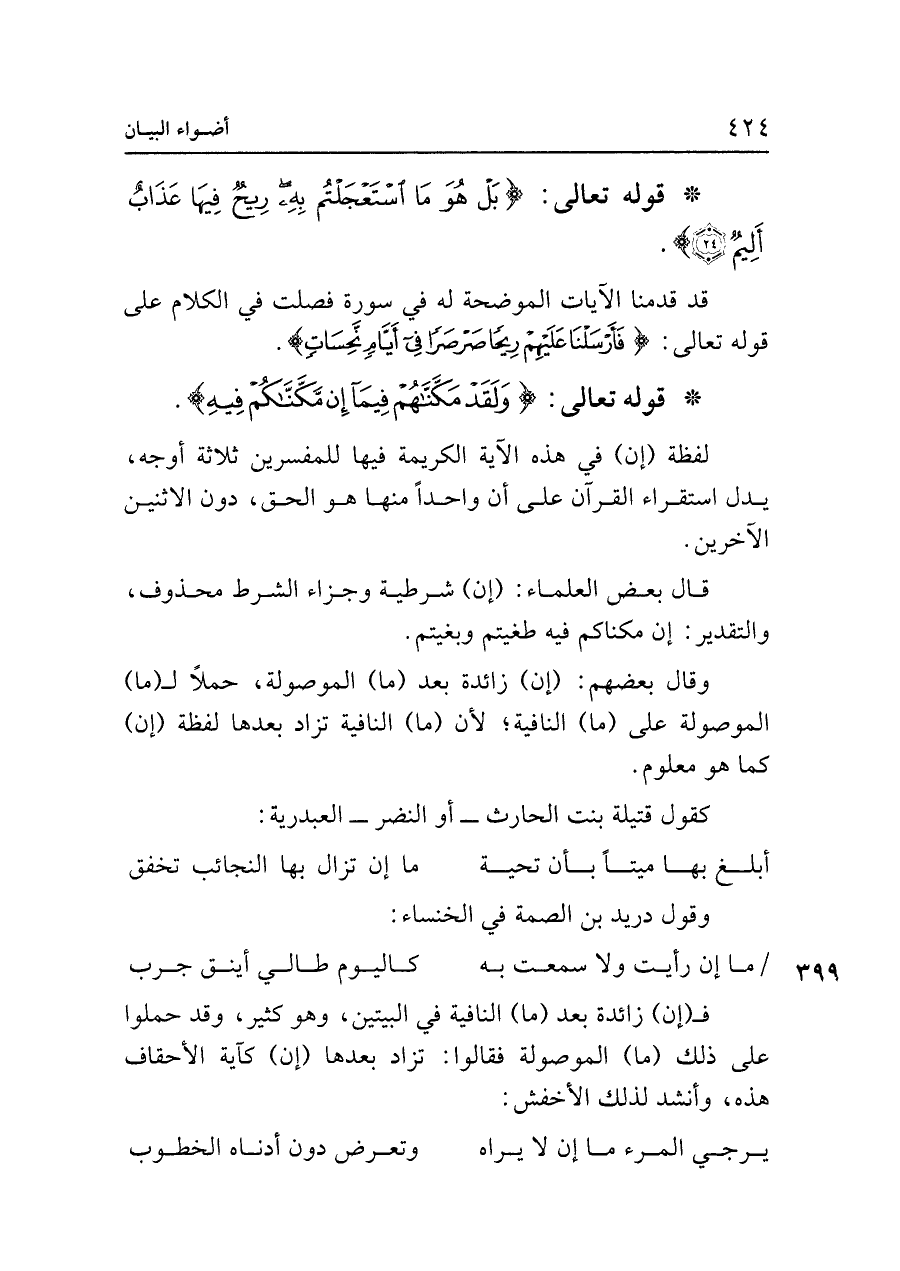 ٤٢٤ أضواء البيان
* قوله تعالى: ﴿بَلْ هُوَ مَا ٱسْتَعْجَلْتُم بِهِۦۖ رِيحٌ فِيهَا عَذَابٌ
أَلِيمٌ ۝٢٤﴾.
قد قدمنا الآيات الموضحة له في سورة فصلت في الكلام على
قوله تعالى: ﴿فَأَرْسَلْنَا عَلَيْهِمْ رِيحًا صَرْصَرًا فِىٓ أَيَّامٍ نَّحِسَاتٍ﴾.
* قوله تعالى: ﴿وَلَقَدْ مَكَّنَّٰهُمْ فِيمَآ إِن مَّكَّنَّٰكُمْ فِيهِ﴾.
لفظة (إن) في هذه الآية الكريمة فيها للمفسرين ثلاثة أوجه،
يدل استقراء القرآن على أن واحداً منها هو الحق، دون الاثنين
الآخرين.
قال بعض العلماء: (إن) شرطية وجزاء الشرط محذوف،
والتقدير: إن مكناكم فيه طغيتم وبغيتم.
وقال بعضهم: (إن) زائدة بعد (ما) الموصولة، حملاً لـ(ما)
الموصولة على (ما) النافية؛ لأن (ما) النافية تزاد بعدها لفظة (إن)
كما هو معلوم.
كقول قتيلة بنت الحارث ــ أو النضر ــ العبدرية:
أبلغ بها ميتاً بأن تحية ما إن تزال بها النجائب تخفق
وقول دريد بن الصمة في الخنساء:
٣٩٩ / ما إن رأيت ولا سمعت به كاليوم طالي أينق جرب
فـ(إن) زائدة بعد (ما) النافية في البيتين، وهو كثير، وقد حملوا
على ذلك (ما) الموصولة فقالوا: تزاد بعدها (إن) كآية الأحقاف
هذه، وأنشد لذلك الأخفش:
يرجي المرء ما إن لا يراه وتعرض دون أدناه الخطوب